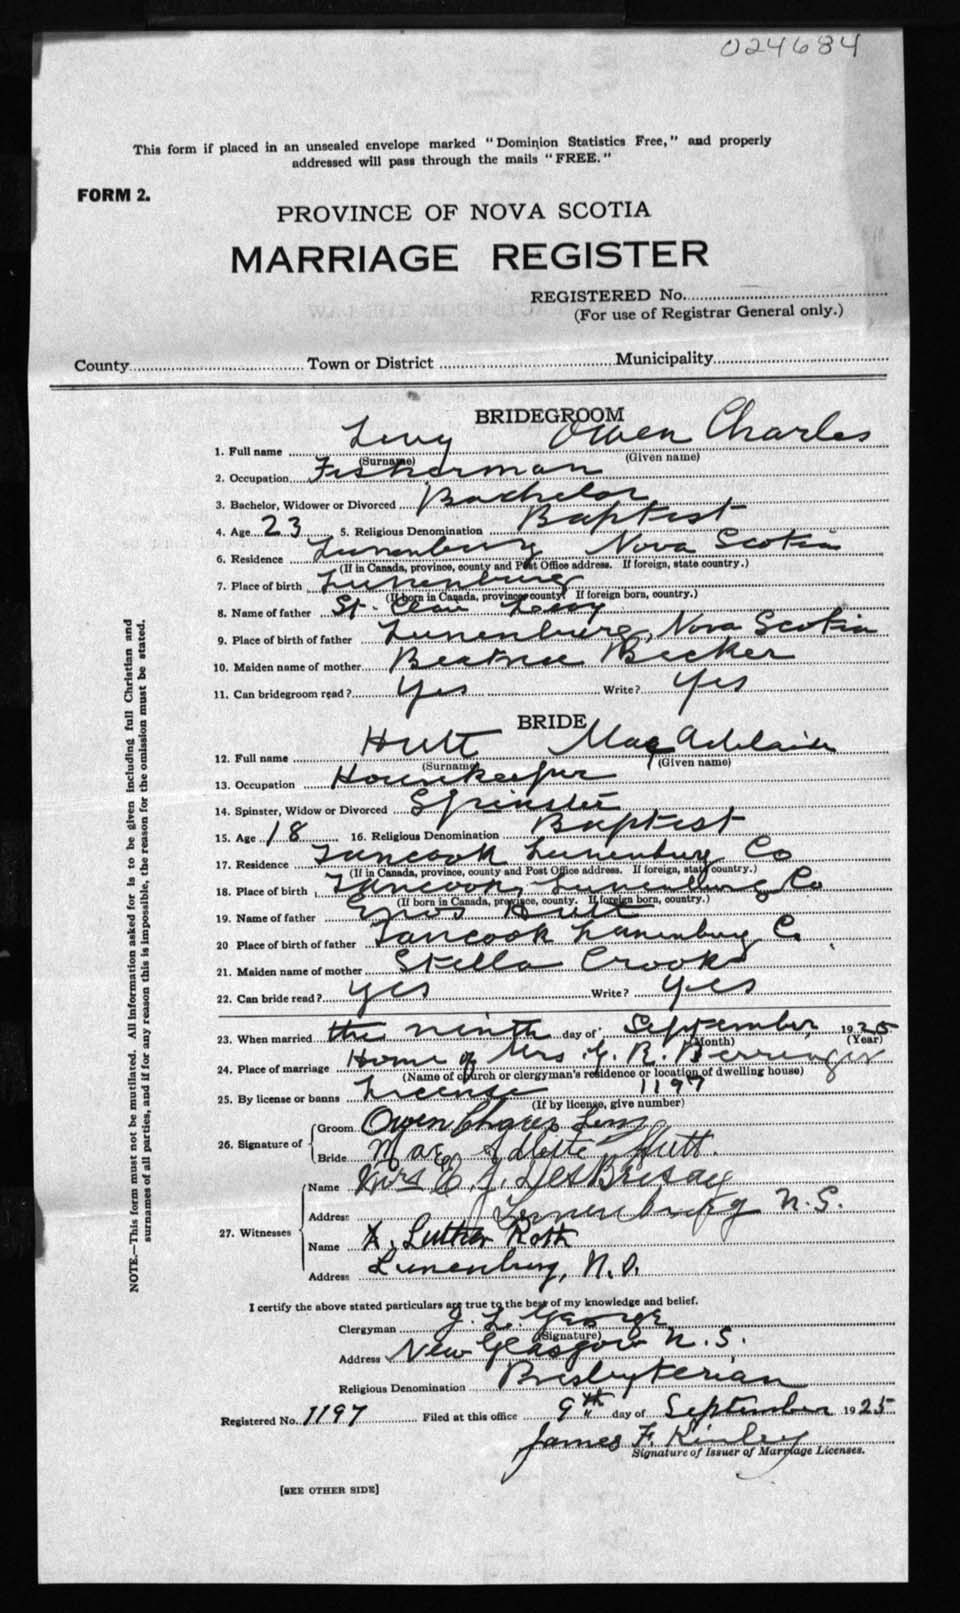 024684
This form if placed in an unsealed envelope marked "Dominion Statistics Free," and properly
addressed will pass through the mails "FREE."
FORM 2.
PROVINCE OF NOVA SCOTIA
MARRIAGE REGISTER
REGISTERED No.
(For use of Registrar General only.)
County Town or District Municipality
BRIDEGROOM
1. Full name Levy Owen Charles
(Surname) (Given name)
2. Occupation Fisherman
3. Bachelor, Widower or Divorced Bachelor
4. Age 23 5. Religious Denomination Baptist
6. Residence Lunenburg Nova Scotia
(If in Canada, province, county and Post Office address. If foreign, state country.)
7. Place of birth Lunenburg
(If born in Canada, province county. If foreign born, country.)
8. Name of father St. Clair Levy
9. Place of birth of father Lunenburg, Nova Scotia
10. Maiden name of mother Beatrice Becker
11. Can bridegroom read? Yes Write? Yes
BRIDE
12. Full name Hutt Mae Adelaide
(Surname) (Given name)
13. Occupation Housekeeper
14. Spinster, Widow or Divorced Spinster
15. Age 18 16. Religious Denomination Baptist
17. Residence Tancook Lunenburg Co
(If in Canada, province, county and Post Office address. If foreign, state country.)
18. Place of birth Tancook, Lunenburg Co
(If born in Canada, province, county. If foreign born, country.)
19. Name of father Enos Hutt
20 Place of birth of father Tancook Lunenburg Co.
21. Maiden name of mother Stella Crooks
22. Can bride read? Yes Write? Yes
23. When married the ninth day of September 1925
(Month) (Year)
24. Place of marriage Home of Mrs. G. R. Berringer
(Name of church or clergyman's residence or location of dwelling house)
25. By license or banns License 1197
(If by license, give number)
26. Signature of Groom Owen Charles Levy
Bride Mae Adlite Hutt.
27. Witnesses Name Mrs E. J. DesBrisay
Address Lunenburg N.S.
Name A. Luther Roth
Address Lunenburg, N.S.
I certify the above stated particulars are true to the best of my knowledge and belief.
Clergyman J. L. George
(Signature)
Address New Glasgow N.S.
Religious Denomination Presbyterian
Registered No. 1197 Filed at this office 9th day of September 1925
James F. Kinley
Signature of Issuer of Marriage Licenses.
[SEE OTHER SIDE]
NOTE.—This form must not be mutilated. All information asked for is to be given including full Christian and
surnames of all parties, and if for any reason this is impossible, the reason for the omission must be stated.